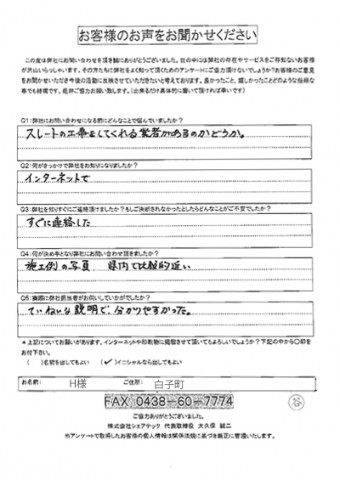 お客様のお声をお聞かせください
この度は弊社にお問い合わせを頂き誠にありがとうございました。世の中には弊社の存在やサービスをご存知ないお客様
が沢山いらっしゃいます。その方たちに弊社をよく知って頂くためのアンケートにご協力頂けないでしょうか？お客様のご意見
をお聞かせいただき今後の活動に反映させていただきたいと考えております。良かったこと、嬉しかったことどの様な些細な
事でも結構です。是非ご協力お願い致します。（出来るだけ具体的に書いて頂ければ幸いです）
Q1:弊社にお問い合わせになる前にどんなことで悩んでいましたか？
スレートの工事をしてくれる業者があるのかどうか。
Q2:何がきっかけで弊社をお知りになりましたか？
インターネットで
Q3:弊社を知りすぐにご連絡頂けましたか？もしご決断されなかったとしたらどんなことがご不安でしたか？
すぐに連絡した
Q4:何が決め手となり弊社にお問い合わせ頂きましたか？
施工例の写真 県内で比較的近い
Q5:実際に弊社担当者がお伺いしていかがでしたか？
ていねいな説明で、分かりやすかった。
＊上記についてお願いがあります。インターネットや印刷物に掲載させて頂いてもよろしいでしょうか？下記の中から〇印を
お付下さい。
（ ）名前を出してもよい （✓）イニシャルなら出してもよい
お名前： H様 ご住所： 白子町
FAX 0438-60-7774
ご協力ありがとうございました。
株式会社シェアテック 代表取締役 大久保 誠二
※アンケートで取得したお客様の個人情報は関係法規に基づき厳正に管理いたします。